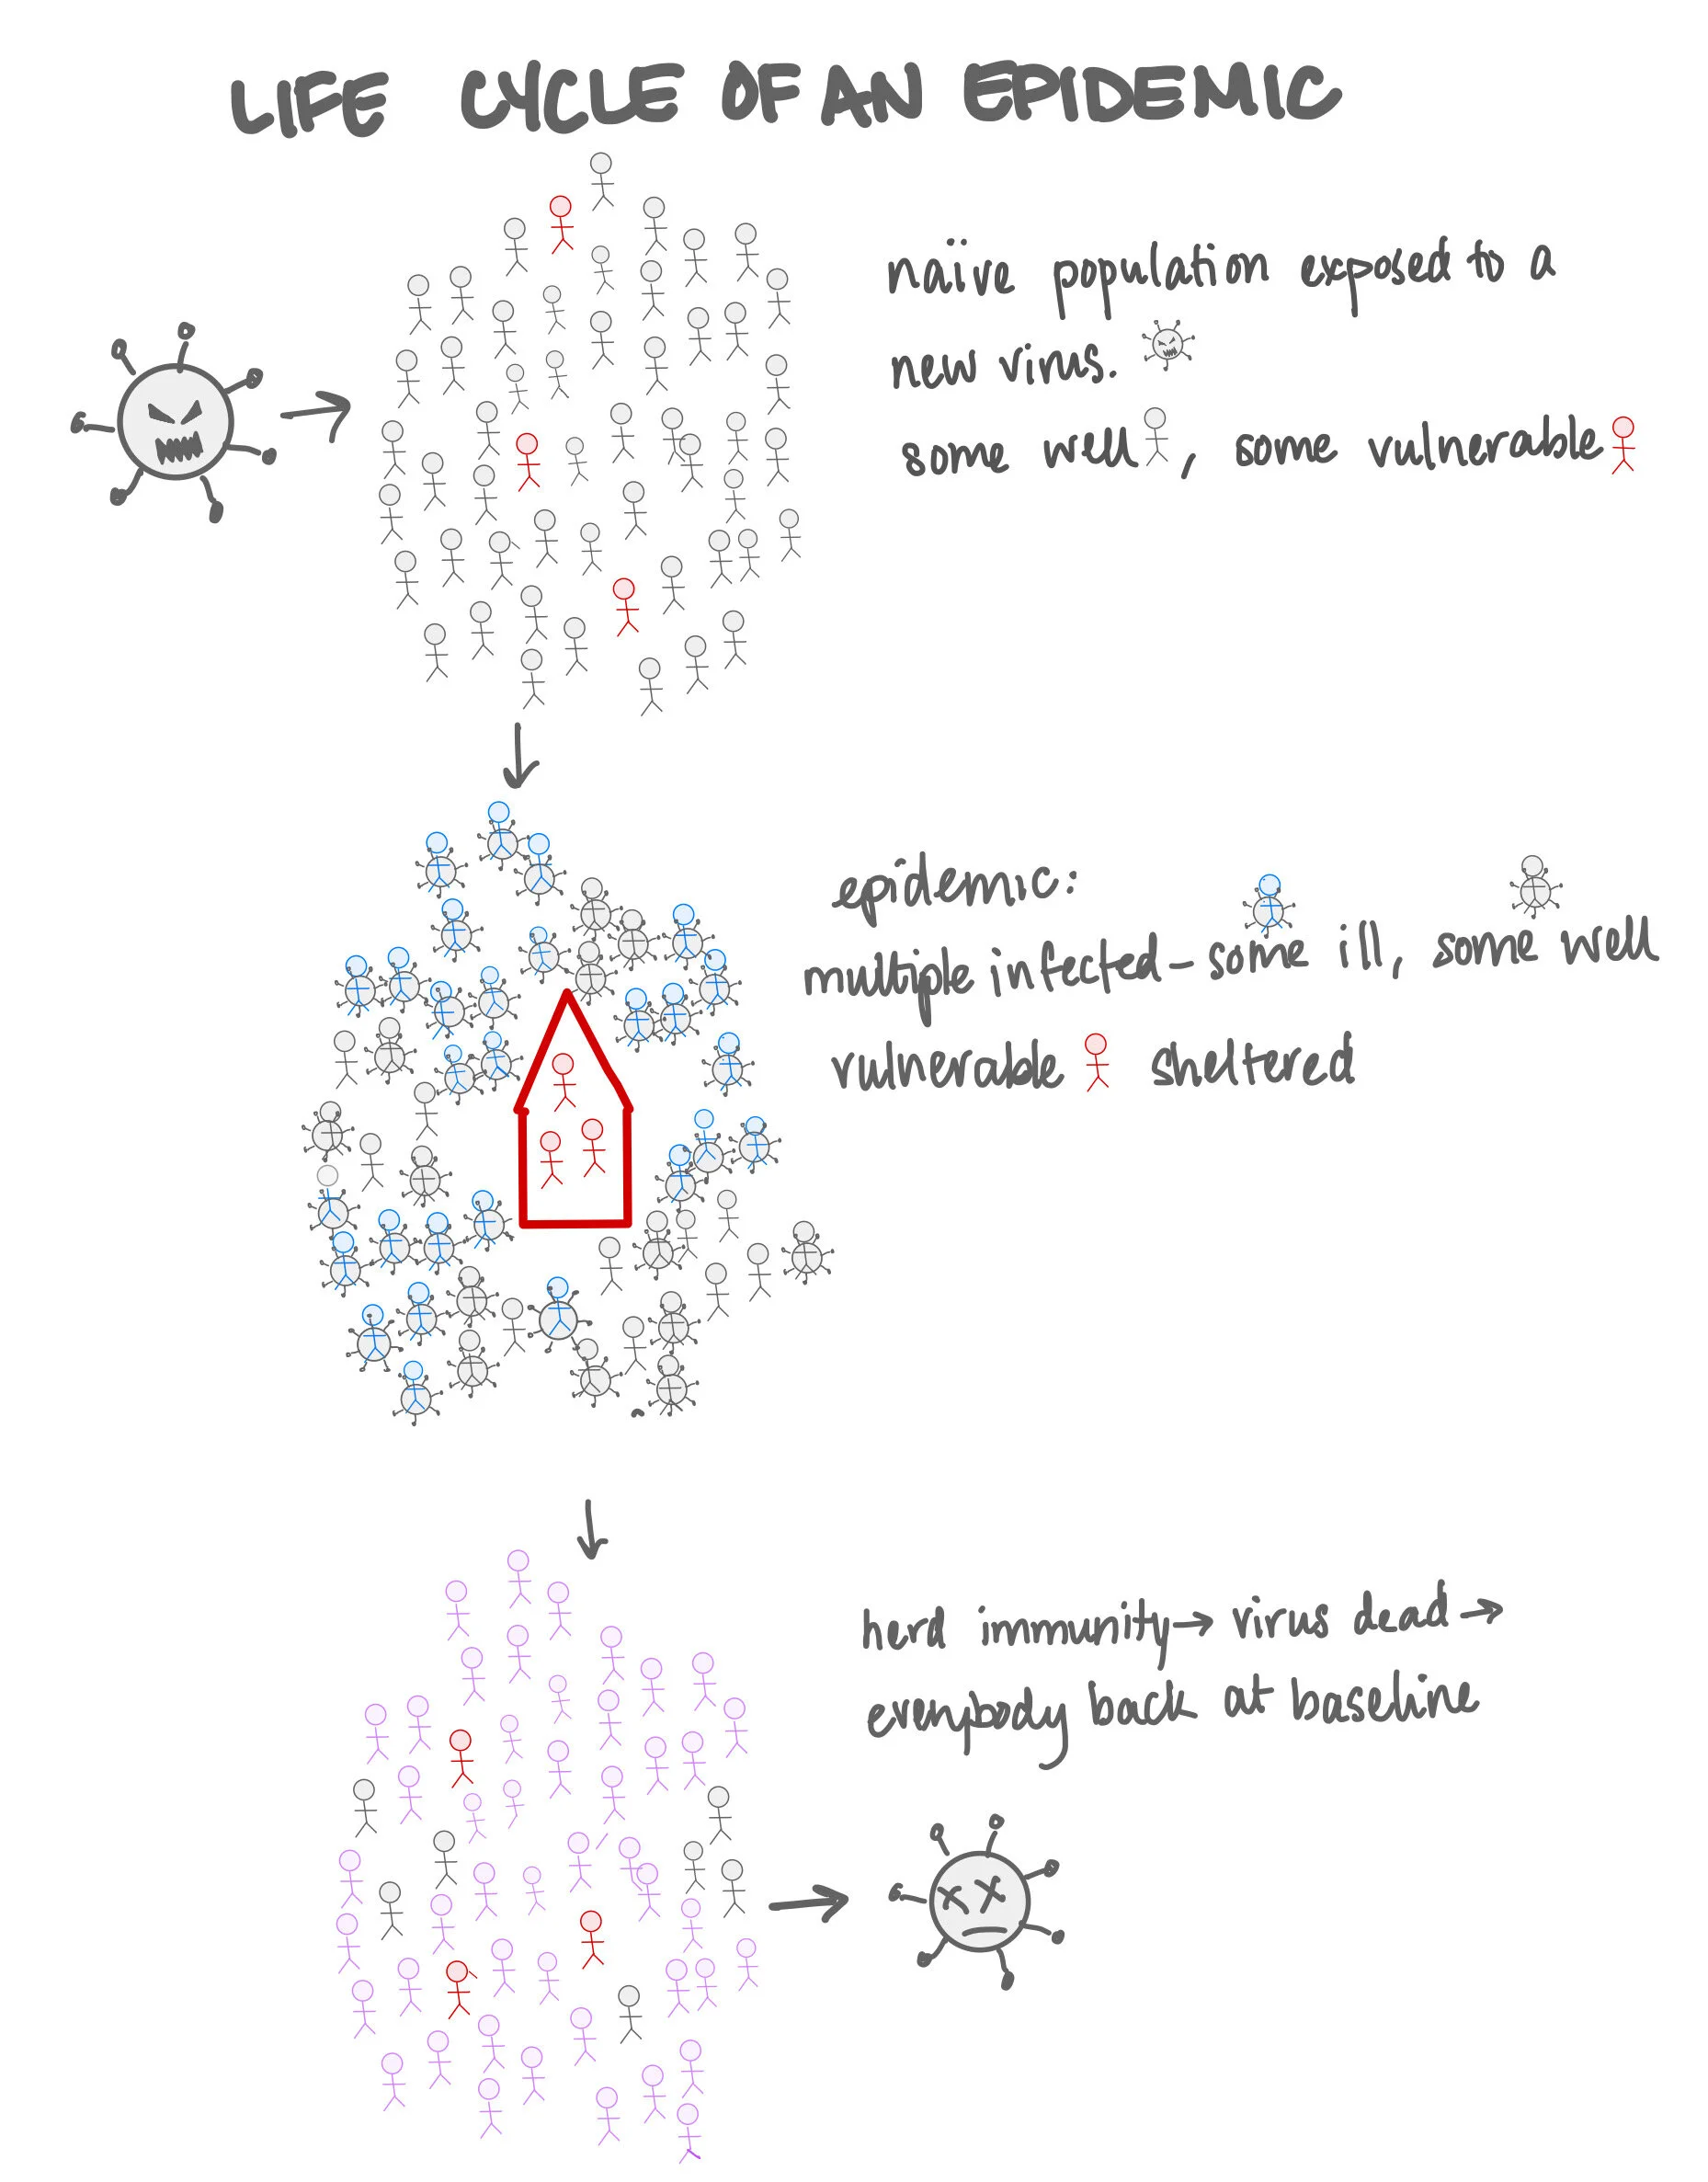 LIFE CYCLE OF AN EPIDEMIC
naïve population exposed to a
new virus.
some well, some vulnerable
epidemic:
multiple infected - some ill, some well
vulnerable sheltered
herd immunity → virus dead →
everybody back at baseline